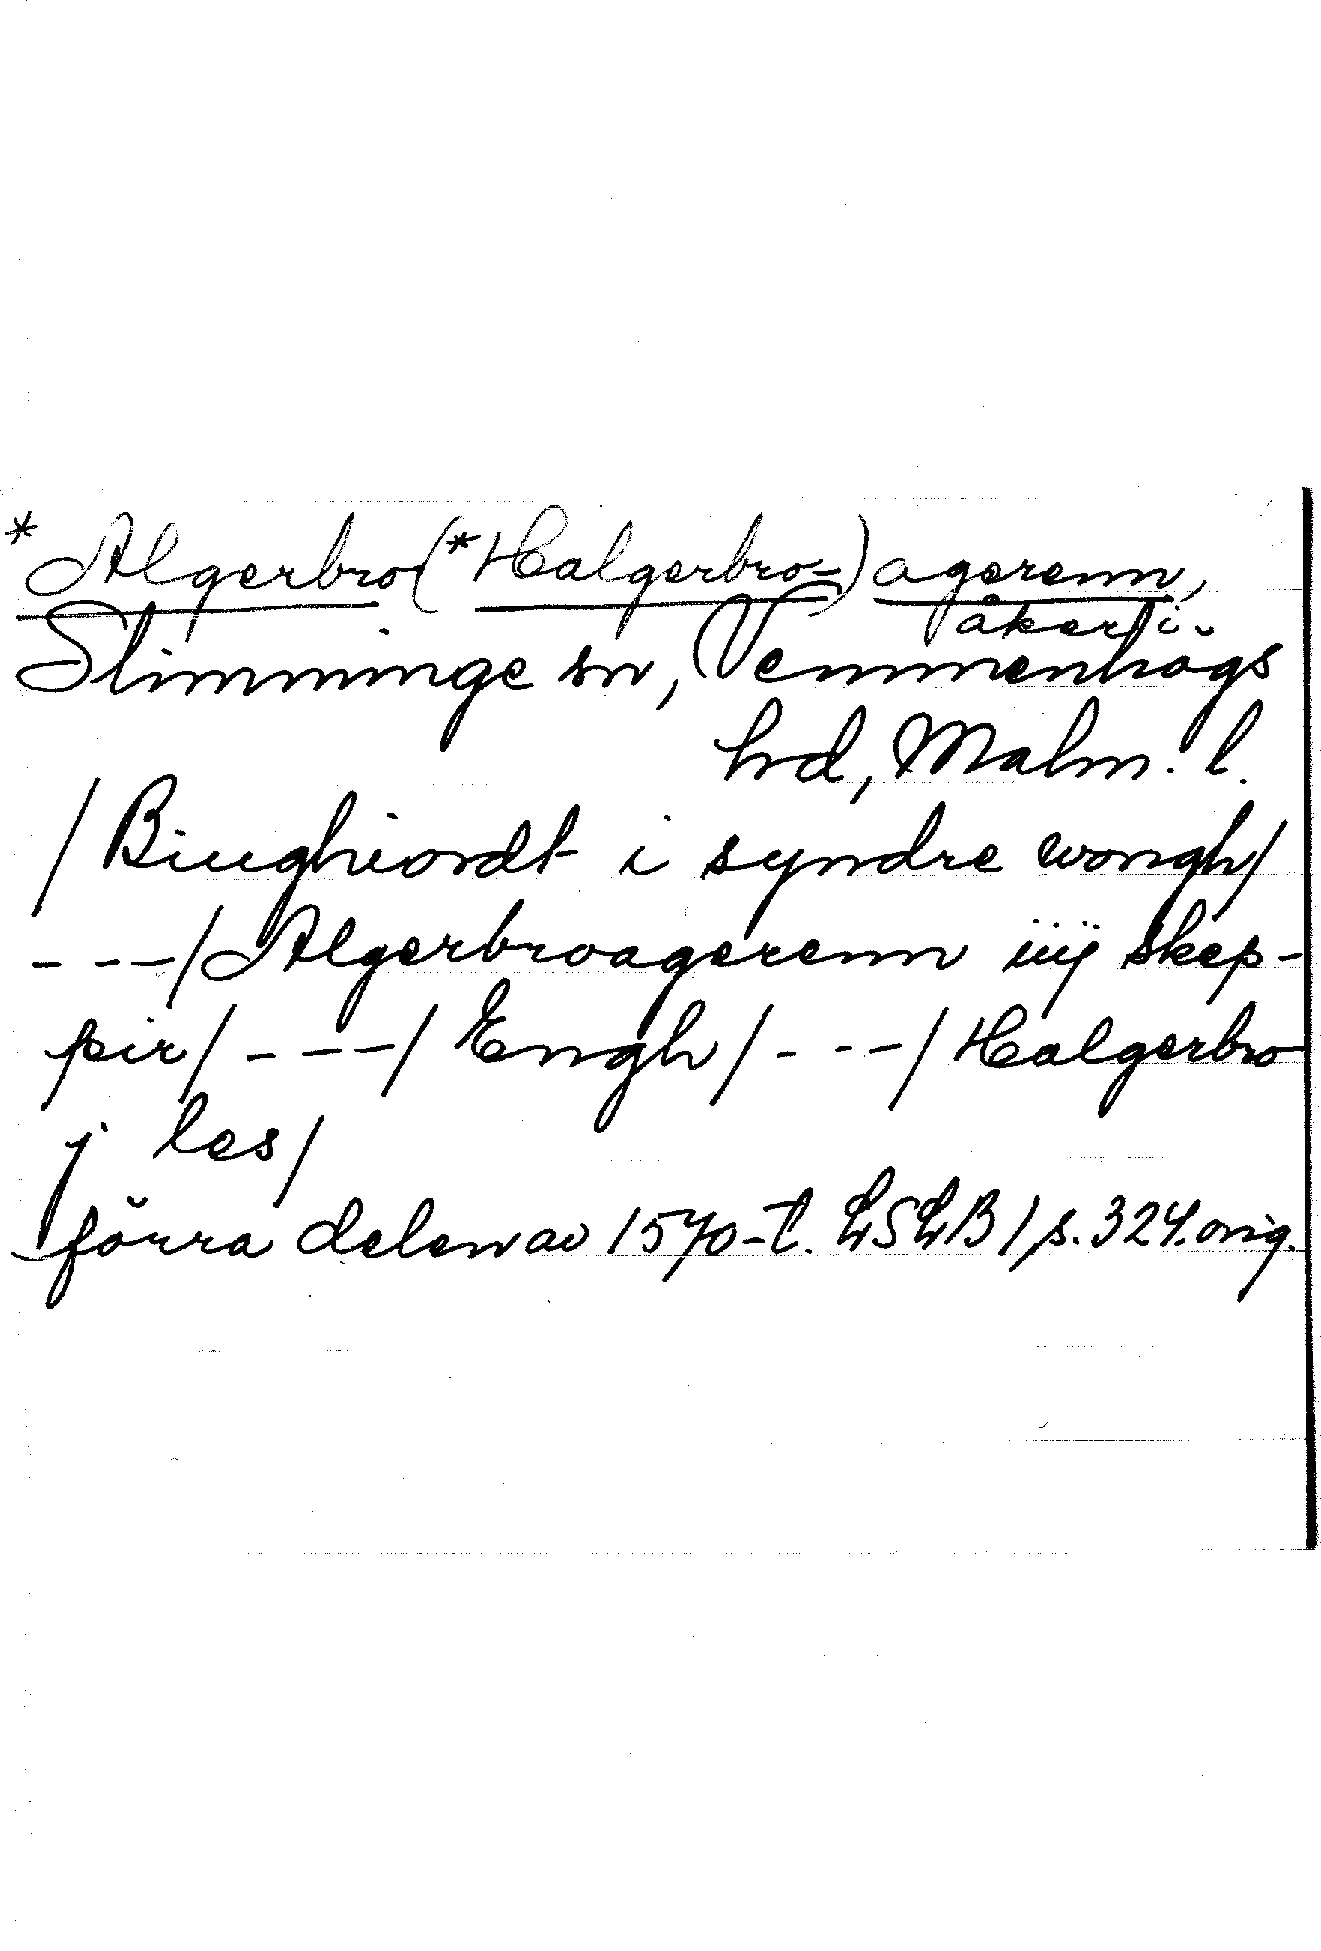 *Algerbro(*Halgerbro-)agerenn,
åker i
Slimminge sn, Vemmenhögs
hd, Malm. l.
/Biughiordt i syndre wongh/
- - - /Algerbroagerenn iiij skep-
pir/ - - - /Engh/ - - - /Halgerbro
j les/
förra delen av 1570-t. LSLB/s. 324. orig.